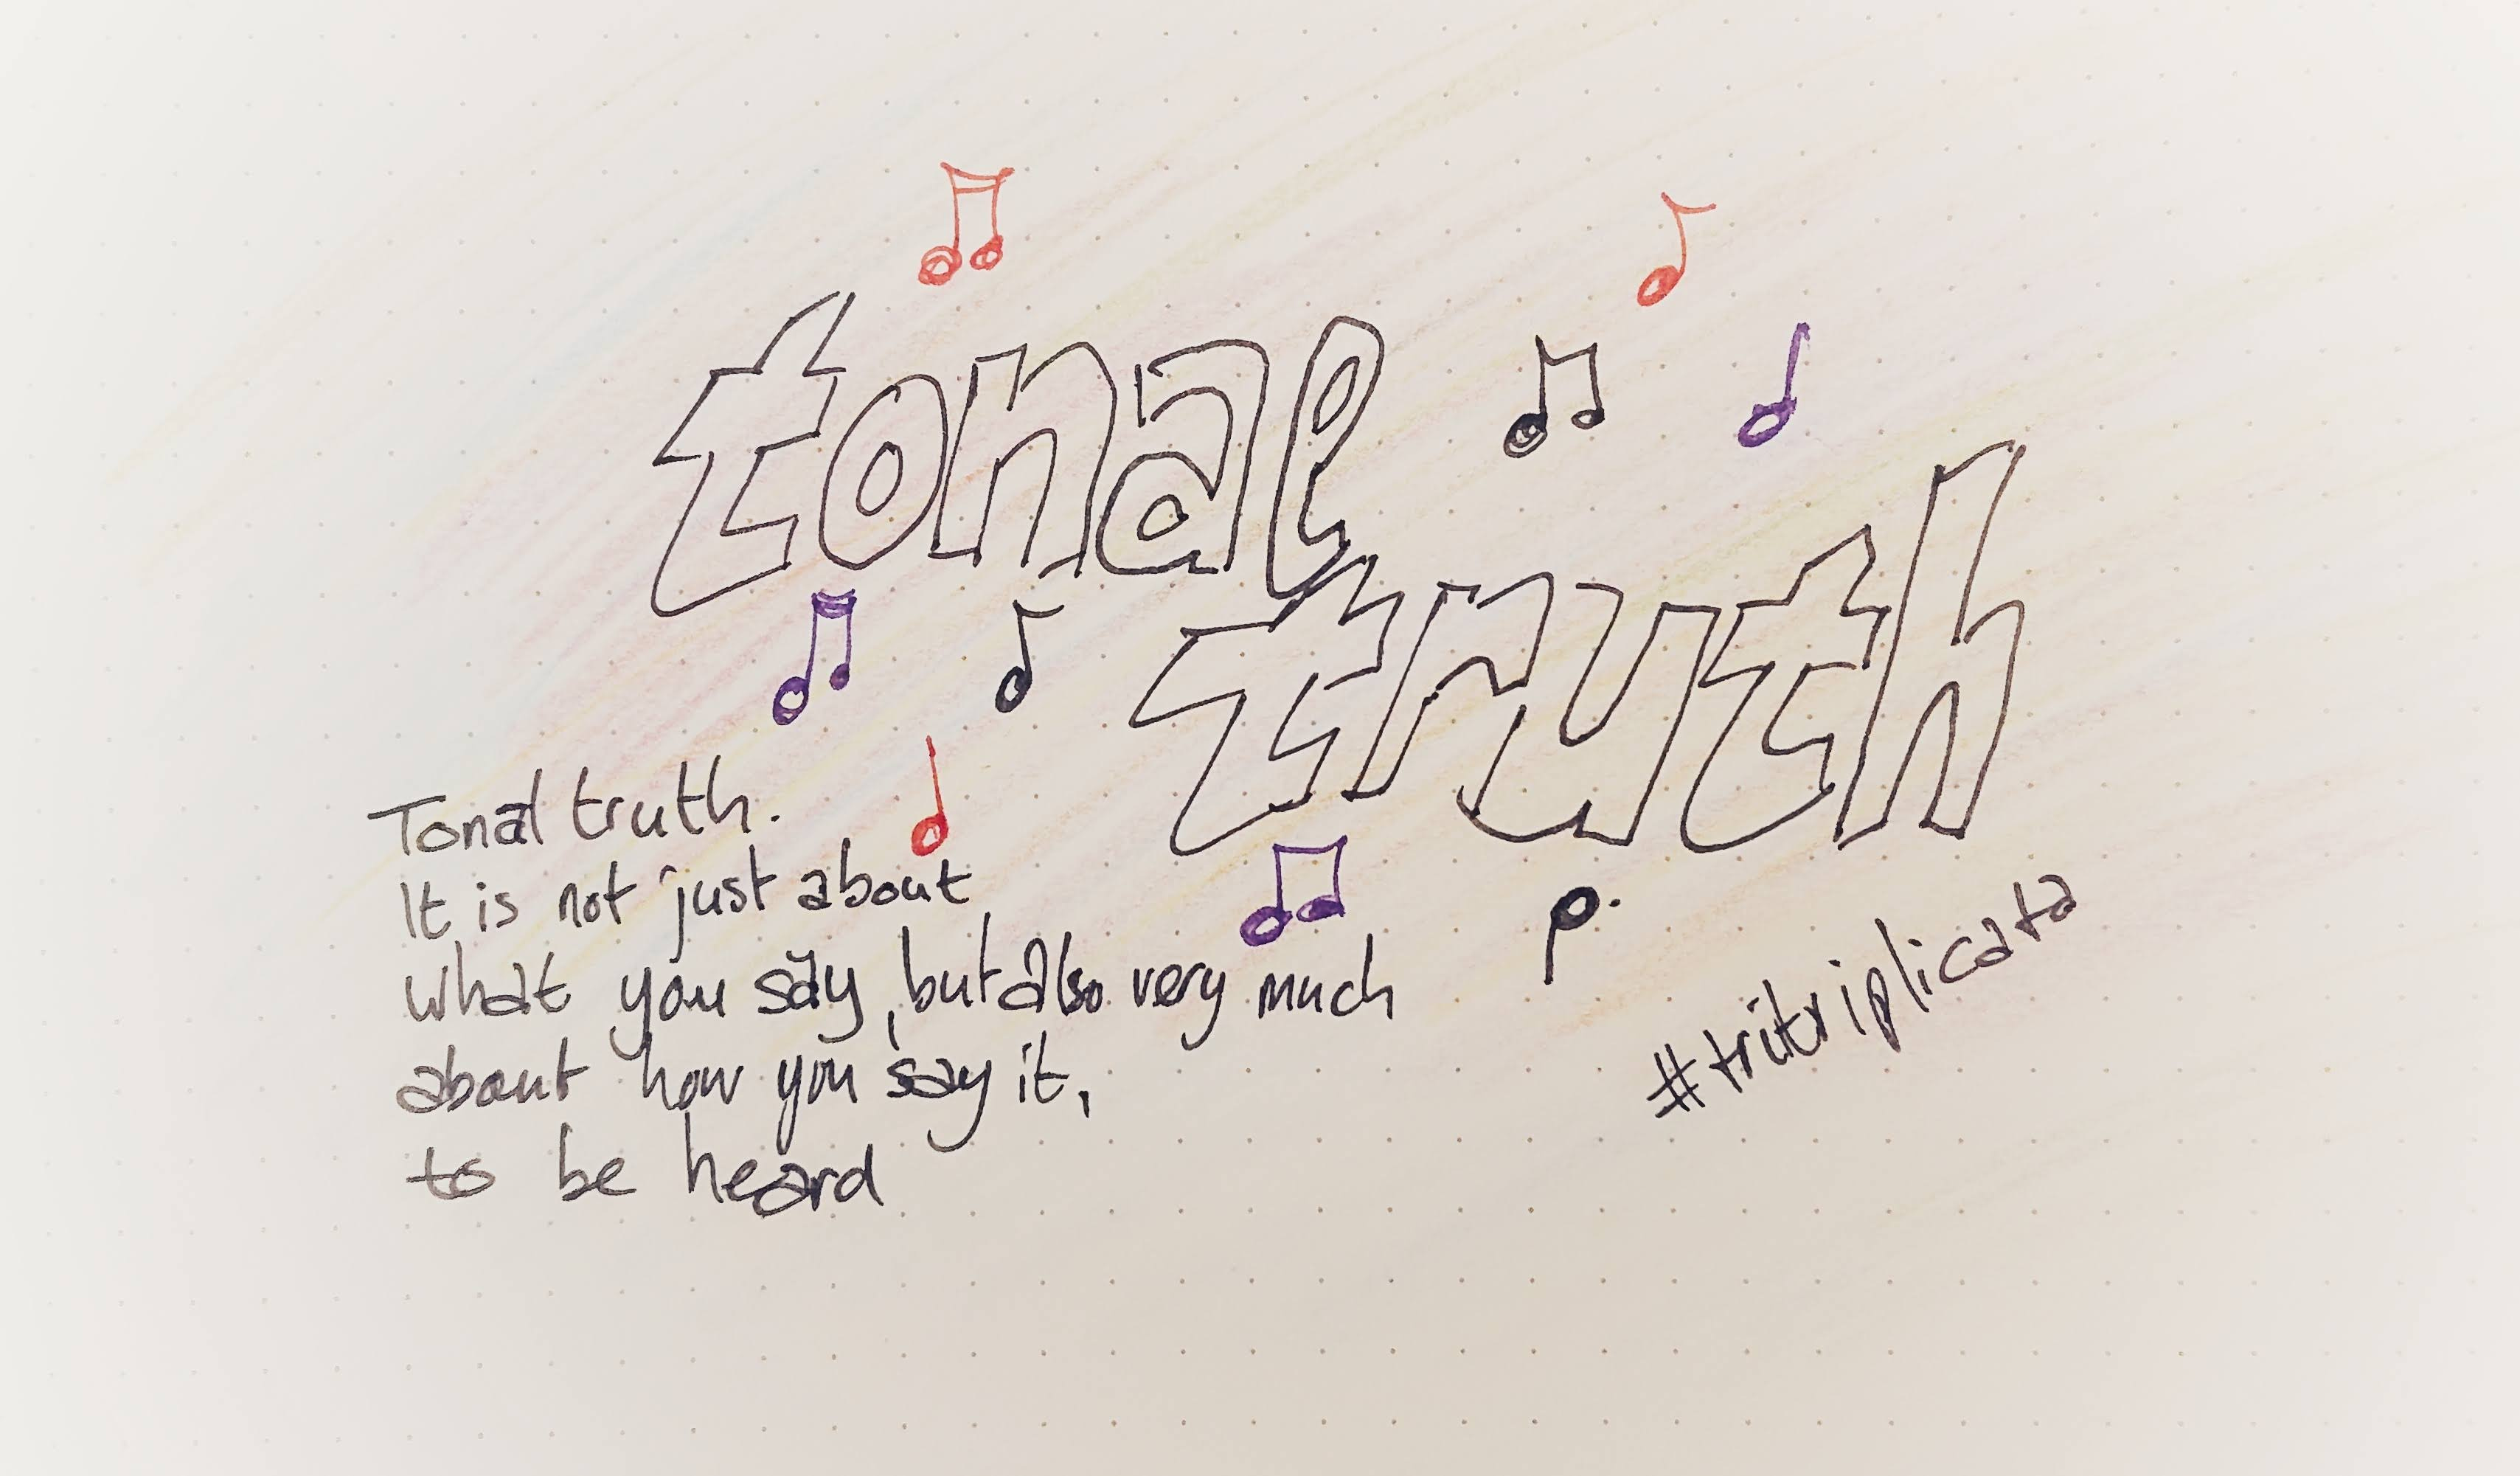 tonal
truth
Tonal truth.
It is not just about
what you say, but also very much
about how you say it,
to be heard
#tritriplicata